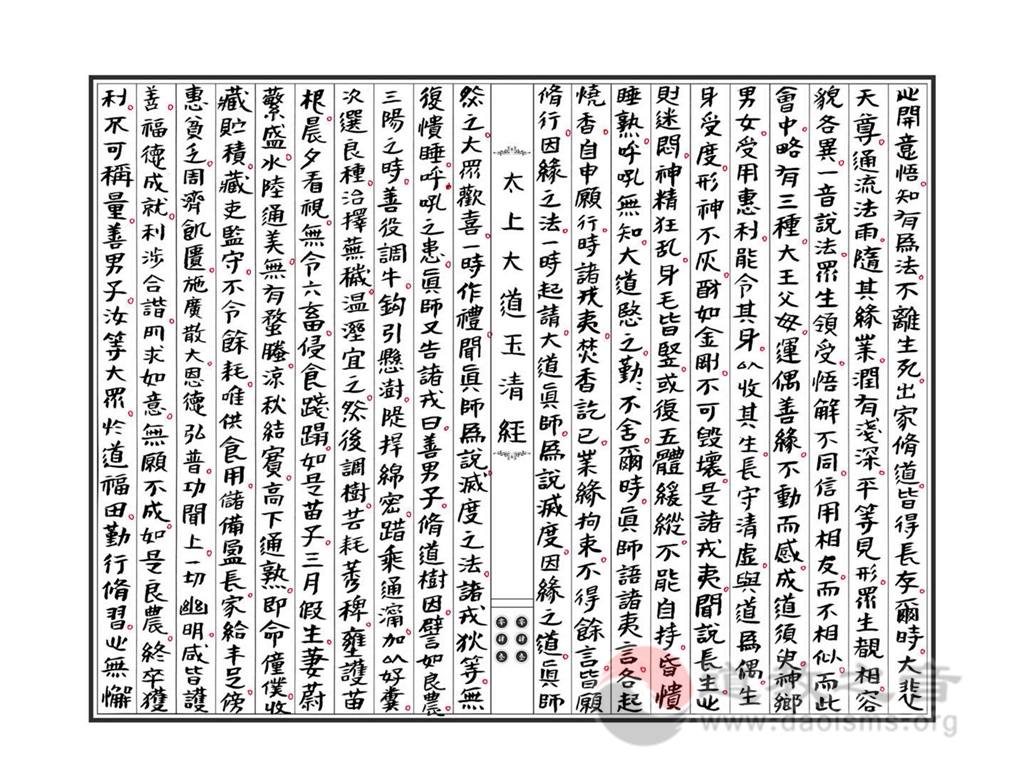 心開意悟知有為法不離生死出家脩道皆得長存爾時大悲
天尊通流法雨隨其緣業潤有淺深平等見形眾生覩相容
貌各異一音說法眾生領受悟解不同信用相友而不相似而此
會中略有三種大王父母運偶善緣不動而感成道須臾神鄉
男女受用惠利能令其身以收其生長守清虛與道為偶生
身受度形神不灰酧如金剛不可毀壞是諸戎夷聞說長生心
財迷悶神精狂乱身毛皆竪或復五體緩縱不能自持昏憒
睡熟呼吼無知大道愍之勤勤不舍爾時真師語諸夷言各起
燒香自申願行時諸戎夷焚香訖已業緣拘束不得餘言皆願
脩行因緣之法一時起請大道真師為說滅度因緣之道真師
太上大道玉清經
然之大眾歡喜一時作禮聞真師為說滅度之法諸戎狄等無
復憒睡呼吼之患真師又告諸戎曰善男子脩道樹因譬如良農
三陽之時善役調牛鈎引懸澍隄捍綿密踏乘通瀹加以好糞
次選良種治擇蕪穢溫溼宜之然後調樹芸耗莠稗壅護苗
根晨夕看視無令六畜侵食踐蹋如是苗子三月假生萋蔚
蘩盛水陸通美無有蝥螣涼秋結實高下通熟即命僮僕收
藏貯積藏吏監守不令餘耗唯供食用儲備盈長家給丰足傍
惠貧乏周濟飢匱施廣散大恩德弘普功聞上一切幽明咸皆護
善福德成就利涉合諧所求如意無願不成如是良農終卒獲
利不可稱量善男子汝等大眾於道福田勤行脩習心無懈
道教之音
www.daoisms.org